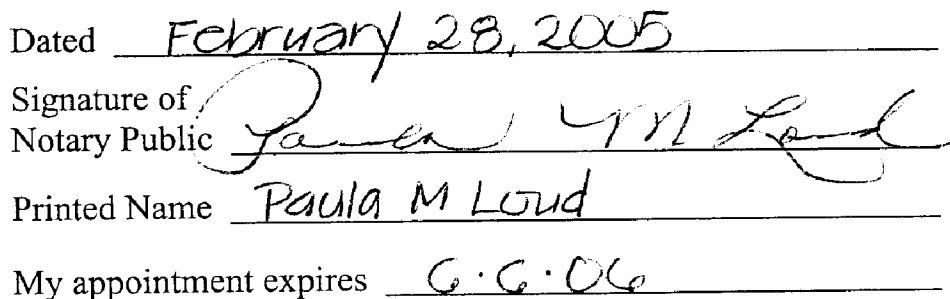 Dated February 28, 2005
Signature of
Notary Public Paula M Loud
Printed Name Paula M Loud
My appointment expires 6·6·06